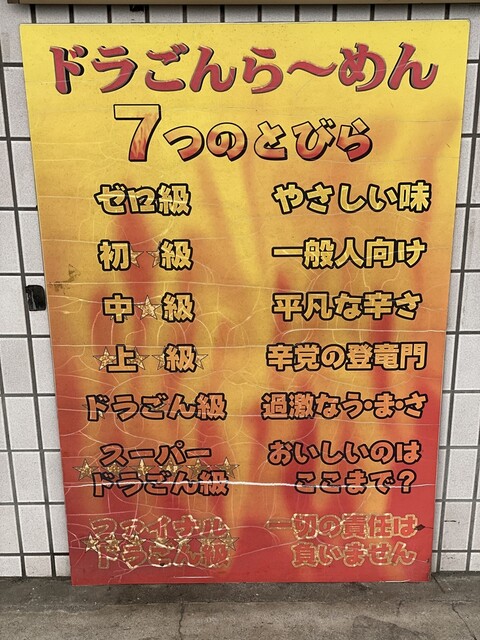 ドラごんら〜めん
7つのとびら
ゼロ級 やさしい味
初☆☆級 一般人向け
中☆級 平凡な辛さ
☆上☆☆級☆ 辛党の登竜門
ドラごん級 過激なう・ま・さ
スーパー おいしいのは
ドラごん級 ここまで?
ファイナル 一切の責任は
ドラごん級 負いません